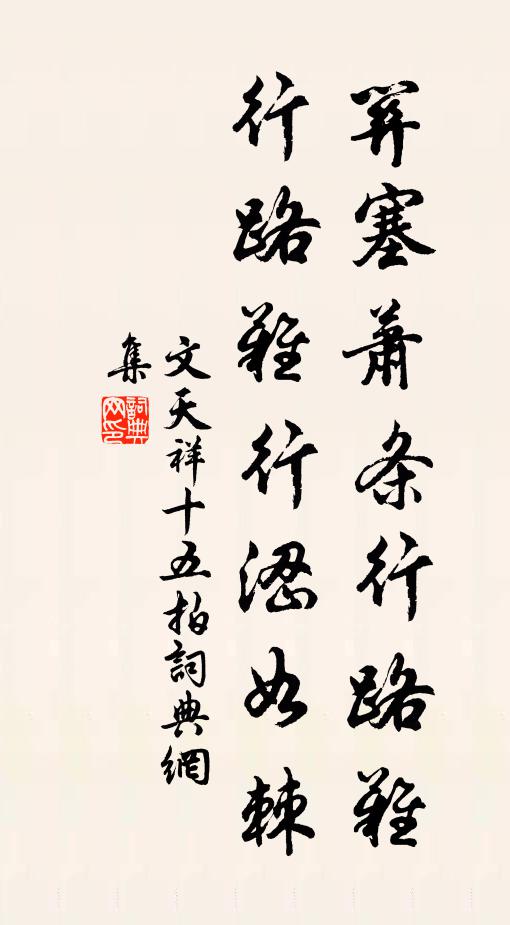 關塞蕭条行路難
行路難行澀如棘
文天祥十五拍詞典網
集
詞典网印